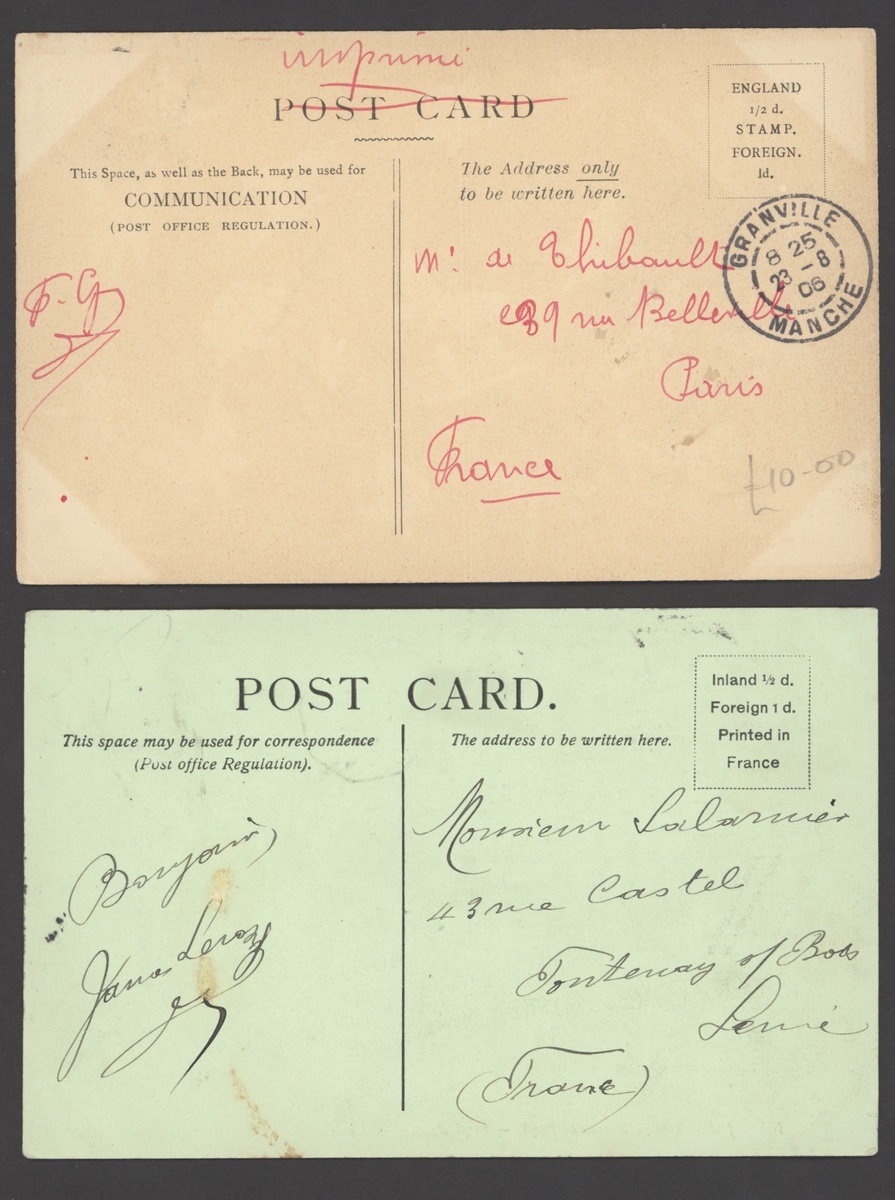 imprimé
POST CARD
ENGLAND
1/2 d.
STAMP.
FOREIGN.
1d.
This Space, as well as the Back, may be used for
COMMUNICATION
(POST OFFICE REGULATION.)
The Address only
to be written here.
GRANVILLE
8 25
23 - 8
06
MANCHE
Mr. de Thibault
39 rue Belleville
Paris
France
£10-00
POST CARD.
Inland ½ d.
Foreign 1 d.
Printed in
France
This space may be used for correspondence
(Post office Regulation).
The address to be written here.
Bonjour
Monsieur Salarnier
43 rue Castel
Fontenay s/ Bois
Seine
(France)